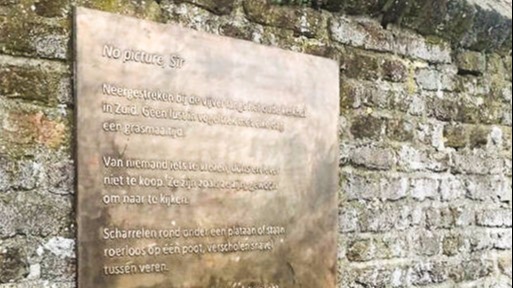 No picture, Sir
Neergestreken bij de vijver
in Zuid. Geen lust in
een grasmaaltijd.
Van niemand iets te
niet te koop. Ze zijn
om naar te kijken.
Scharrelen rond onder een plataan of staan
roerloos op één poot, verscholen snavel
tussen veren.